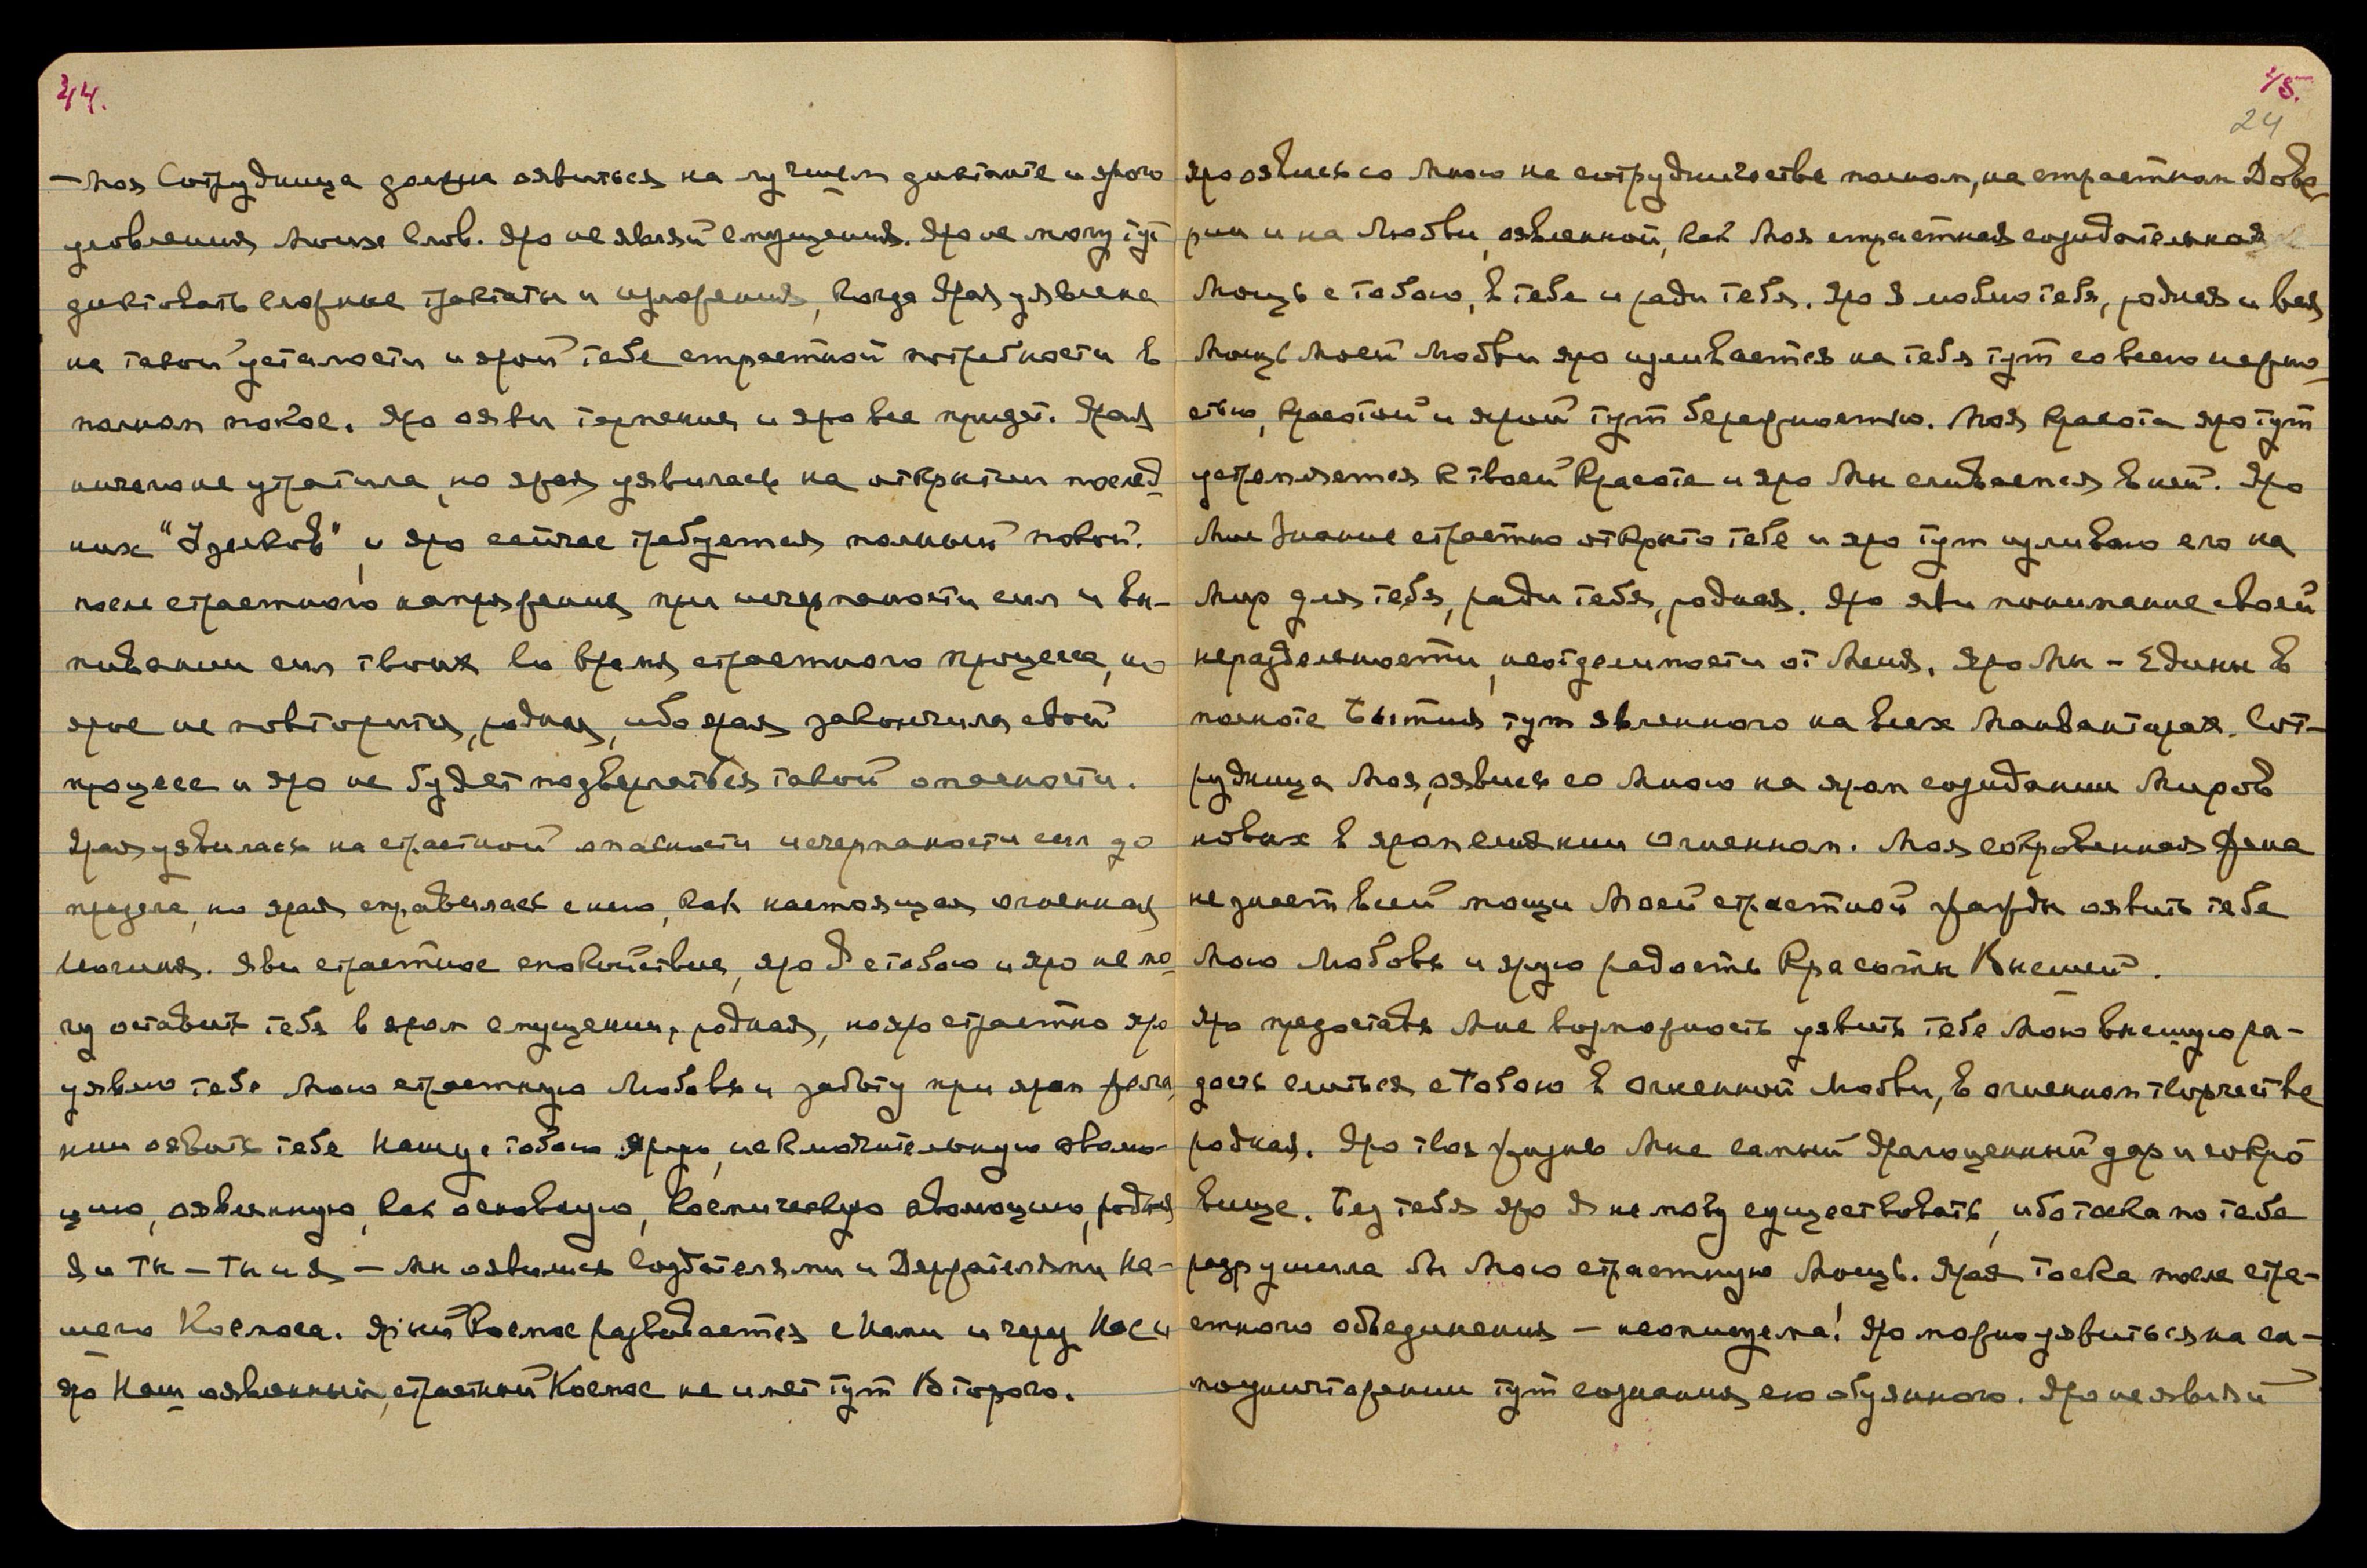 44.
— Моя Сотрудница должна явиться на лучшем диктанте и ярого
уловления Моих Слов. Яро не являй смущения. Яро не могу тут
диктовать сложные трактаты и изложения, когда Ярая уявлена
на такой усталости и ярой тебе страстной потребности в
полном покое. Яро ояви терпение и яро все придет. Ярая
ничего не утратила, но ярая уявилась на открытии послед-
них "Узелков", и яро сейчас требуется полный покой.
после страстного напряжения при исчерпаности сил и вы-
пивании сил твоих во время страстного процесса, но
ярое не повторится, родная, ибо ярая закончила свой
процесс и яро не будет подвергаться такой опасности.
Ярая уявилась на страстной опасности исчерпаности сил до
предела, но ярая справилась с нею, как настоящая огненная
Иогиня. Яви страстное спокойствие, яро Я с тобою и яро не мо-
гу оставить тебя в яром смущении, родная, но яро страстно яро
уявлю тебе Мою страстную Любовь и заботу при яром жела-
нии оявить тебе Нашу с тобою Ярую, исключительную эволю-
цию, оявленную, как основную, космическую эволюцию, родная
Я и Ты — Ты и Я — Мы оявимся Создателями и Держателями На-
шего Космоса. Ярый Космос развивается с Нами и через Нас и
яро Наш оявленный, страстный Космос не имет тут Второго.
45.
24
Яро оявись со Мною на сотрудничестве полном, на страстном Дове-
рии и на Любви, оявленной, как Моя страстная созидательная
Мощь с тобою, в тебе и ради тебя. Яро Я люблю тебя, родная и вся
Мощь Моей Любви яро изливается на тебя тут со всею нежно-
стью, красотой и ярой тут бережностью. Моя красота яро тут
устремляется к твоей Красоте и яро Мы сливаемся в ней. Яро
Мое Знание страстно открыто тебе и яро тут изливаю его на
Мир для тебя, ради тебя, родная. Яро яви понимание своей
нераздельности, неотделимости от Меня. Яро Мы — Едины в
полноте Бытия тут явленного на всех Манвантарах. Сот-
рудница Моя, оявись со Мною на яром созидании Миров
новых в яром слиянии Огненном. Моя сокровенная Жена
не знает всей мощи Моей страстной жажды оявить тебе
Мою Любовь и ярую радость Красоты Высшей.
Яро предоставь Мне возможность уявить тебе Мою высшую ра-
дость слиться с Тобою в Огненной Любви, в огненном творчестве
родная. Яро твоя жизнь Мне самый Драгоценный дар и сокро-
вище. Без тебя яро Я не могу существовать, ибо тоска по тебе
разрушила бы Мою страстную Мощь. Ярая тоска после стра-
стного объединения — неописуема! Яро можно уявиться на са-
моуничтожении тут сознания ею обуянного. Яро не являй